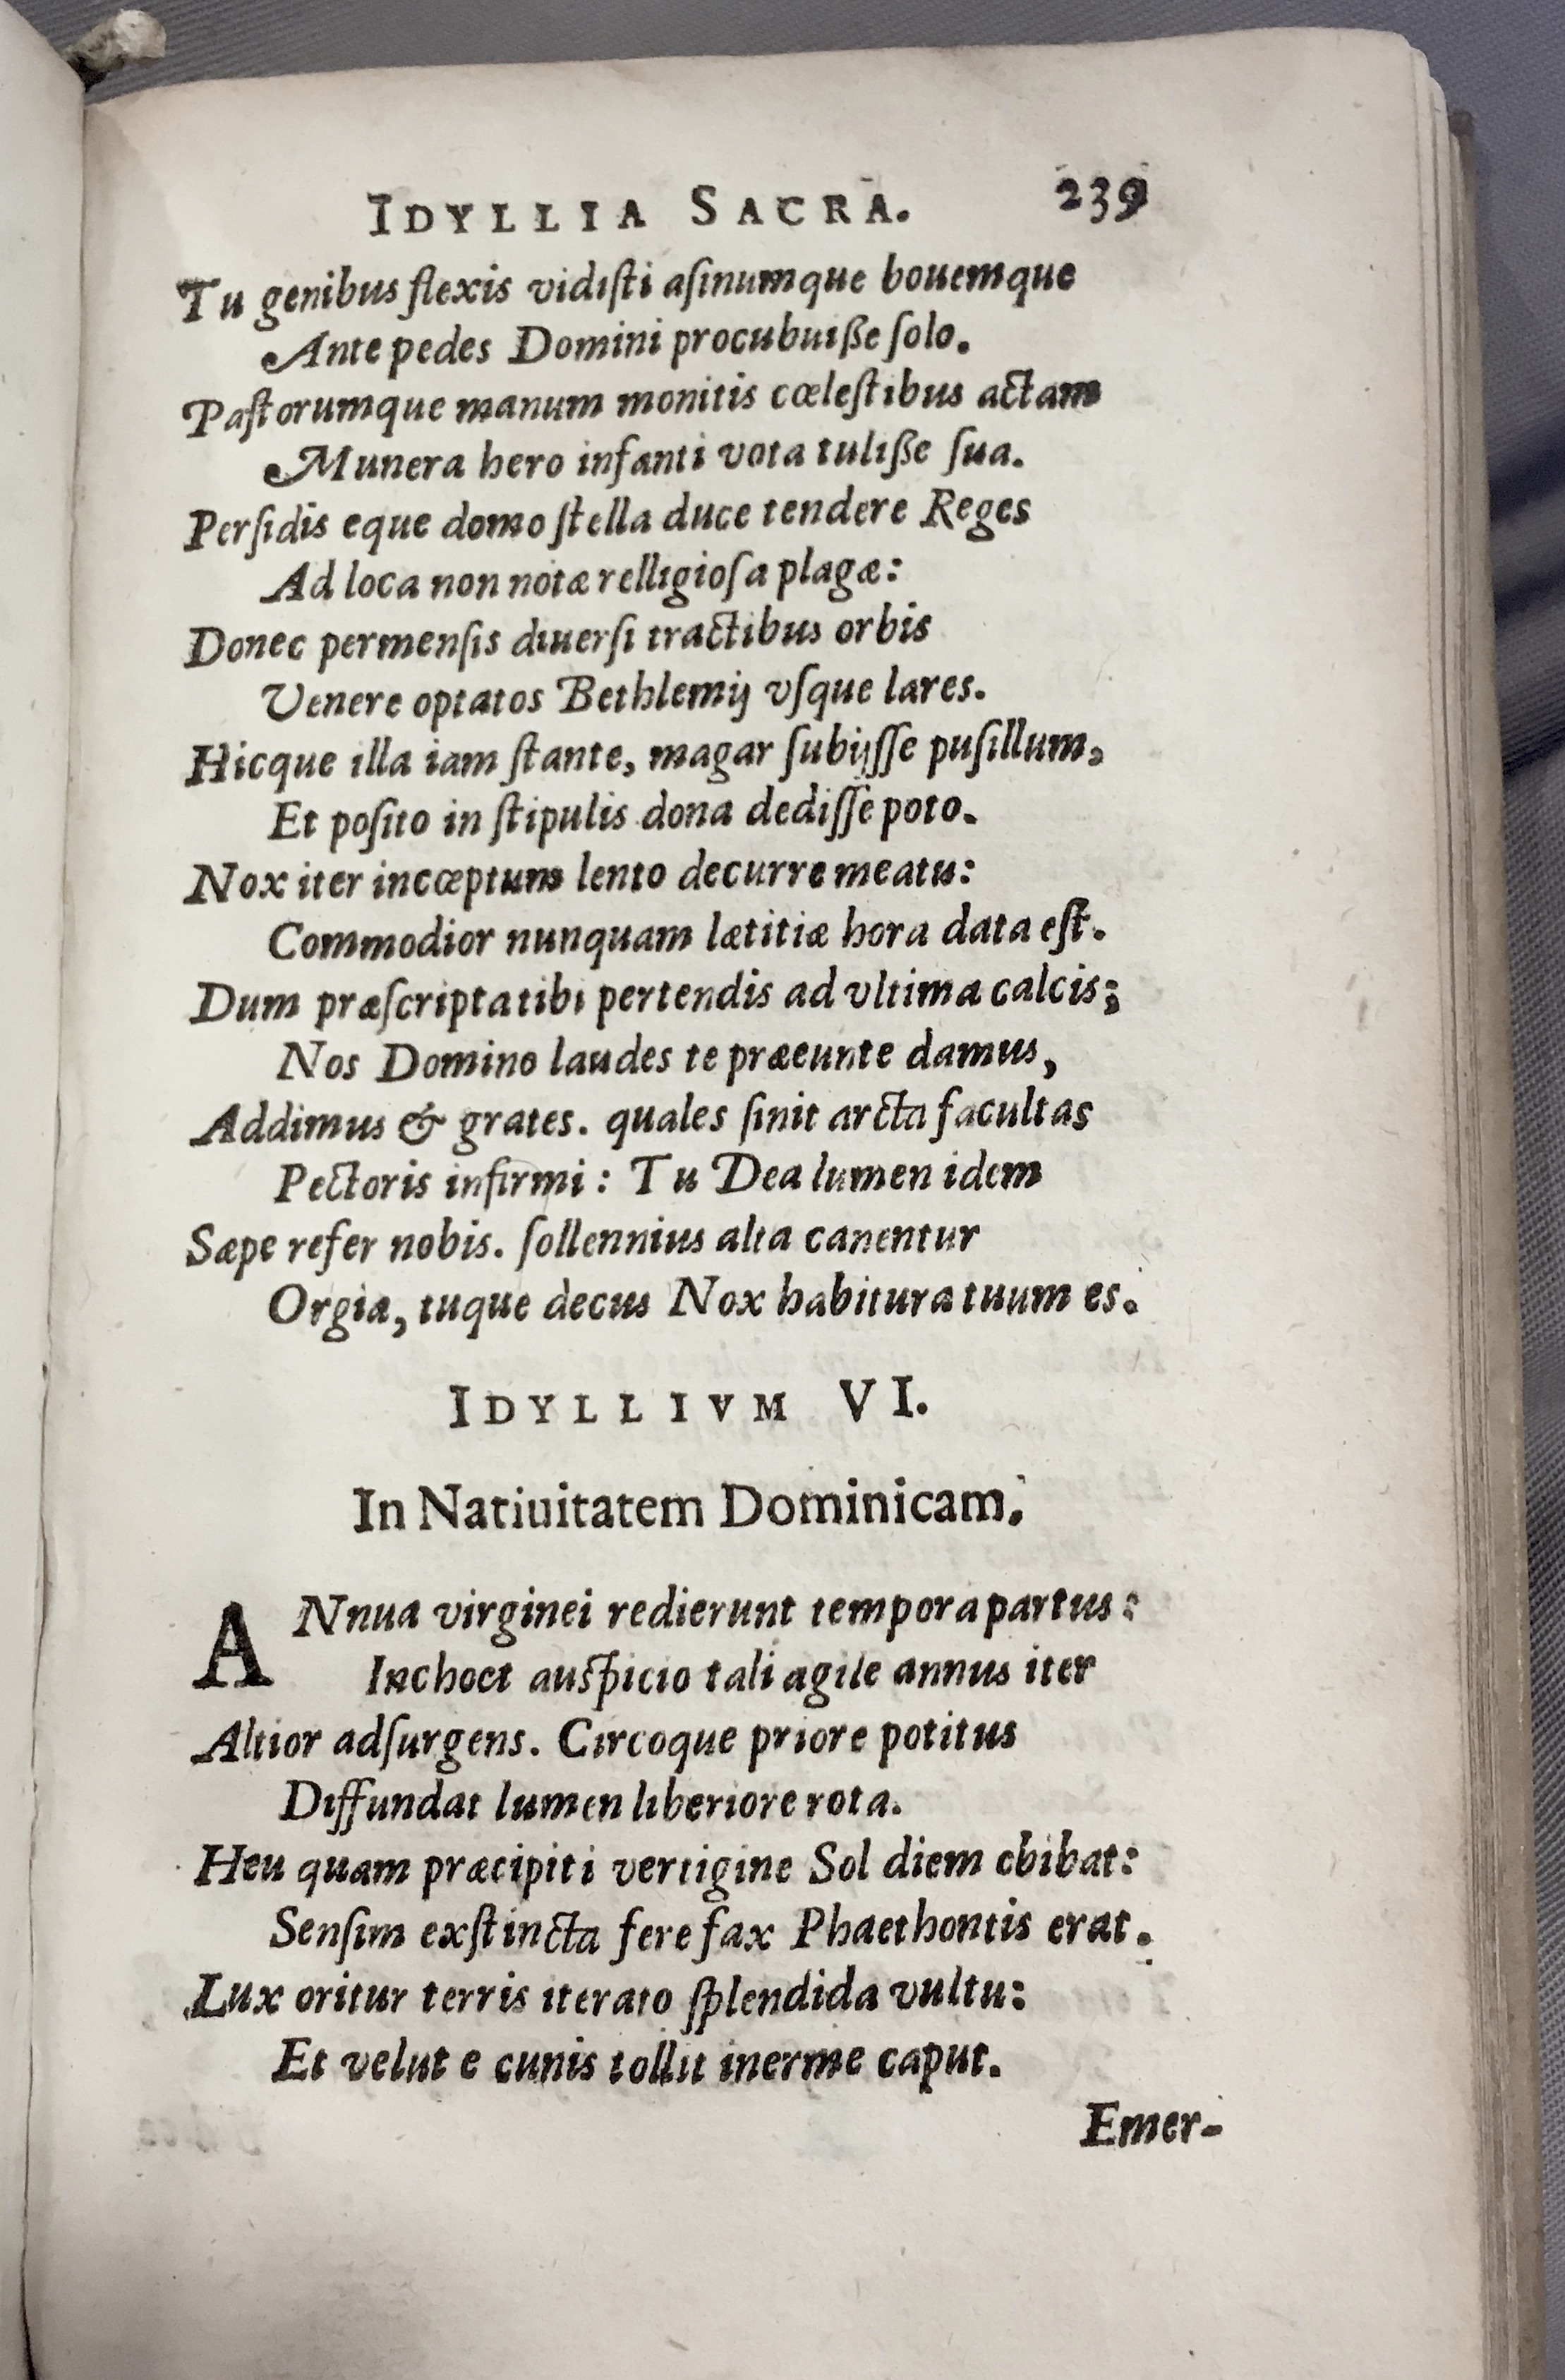 IDYLLIA SACRA. 239
Tu genibus flexis vidiſti aſinumque bouemque
Ante pedes Domini procubuiße ſolo.
Paſtorumque manum monitis cœleſtibus actam
Munera hero infanti vota tuliße ſua.
Perſidis eque domo ſtella duce tendere Reges
Ad loca non notæ relligioſa plagæ:
Donec permenſis diuerſi tractibus orbis
Venere optatos Bethlemij vſque lares.
Hicque illa iam ſtante, magar ſubijſſe puſillum,
Et poſito in ſtipulis dona dediſſe poto.
Nox iter incœptum lento decurre meatu:
Commodior nunquam lætitiæ hora data eſt.
Dum præſcripta tibi pertendis ad vltima calcis;
Nos Domino laudes te præeunte damus,
Addimus & grates. quales ſinit arcta facultas
Pectoris infirmi: Tu Dea lumen idem
Sæpe refer nobis. ſollennius alta canentur
Orgia, tuque decus Nox habitura tuum es.
IDYLLIVM VI.
In Natiuitatem Dominicam.
ANnua virginei redierunt tempora partus:
Inchoet auſpicio tali agile annus iter
Altior adſurgens. Circoque priore potitus
Diffundat lumen liberiore rota.
Heu quam præcipiti vertigine Sol diem obibat:
Senſim exſtincta fere fax Phaethontis erat.
Lux oritur terris iterato ſplendida vultu:
Et velut e cunis tollit inerme caput.
Emer-